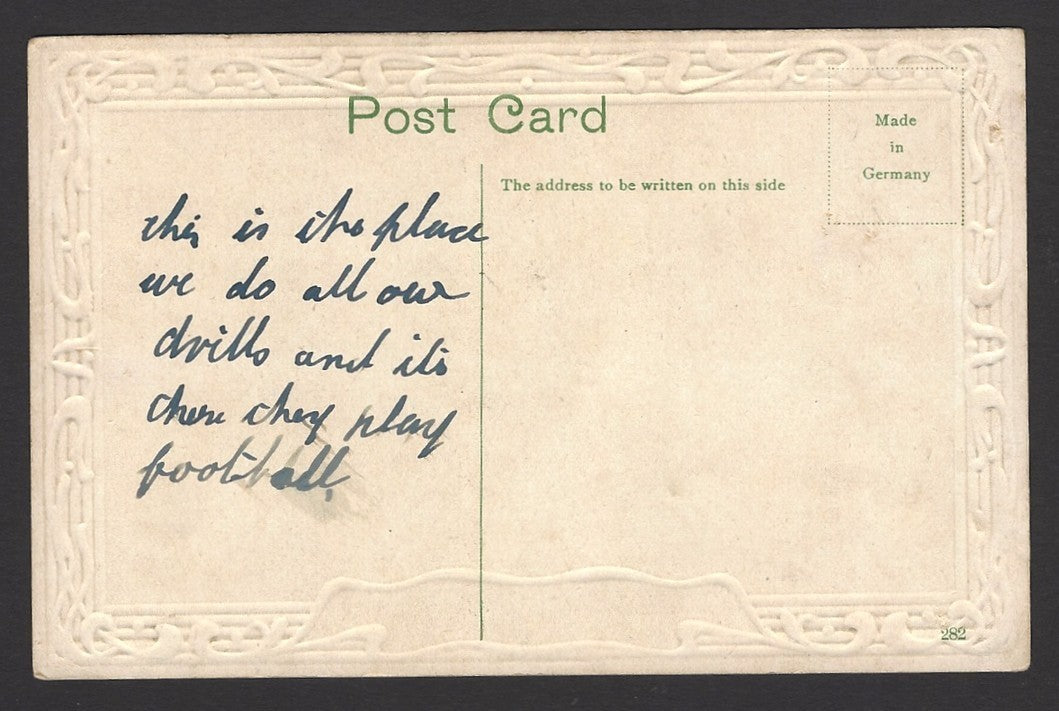 Post Card
Made
in
Germany
The address to be written on this side
this is the place
we do all our
drills and its
there they play
football
282